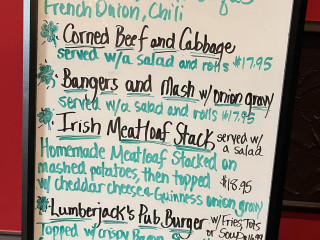 French Onion, Chili
Corned Beef and Cabbage
served w/a salad and rolls $17.95
Bangers and Mash w/onion gravy
served w/a salad and rolls $17.95
Irish Meatloaf Stack served w/
a salad
Homemade Meatloaf Stacked on
mashed potatoes, then topped $18.95
w/cheddar cheese & Guinness onion gravy
Lumberjack's Pub Burger w/Fries, Tots
or Soup
Topped w/crispy Bacon